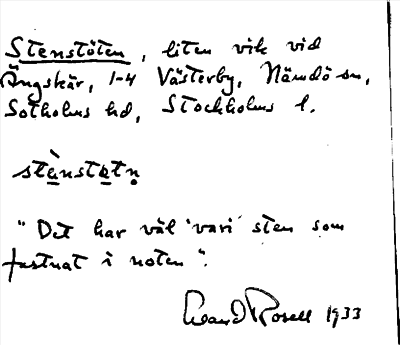 Stenstöten, liten vik vid
Ängskär, 1-4 Västerby, Nämdö sn,
Sotholms hd, Stockholms l.
stènstɵtn̥
"Det har väl vari sten som
fastnat i noten".
Rosell 1933